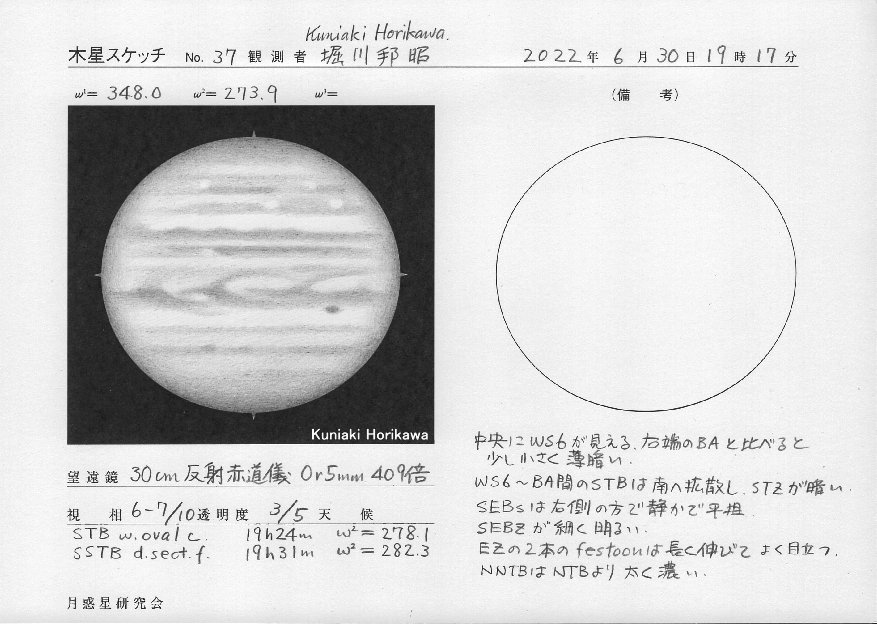 Kuniaki Horikawa.
木星スケッチ No. 37 観測者 堀川邦昭 2022年 6月30日19時17分
ω¹= 348.0 ω²= 273.9 ω³=
(備 考)
Kuniaki Horikawa
中央にWS6が見える、右端のBAと比べると
少し小さく薄暗い.
WS6～BA間のSTBは南へ拡散し、STZが暗い.
SEBsは右側の方で静かで平坦.
SEBZが細く明るい.
EZの2本のfestoonは長く伸びてよく目立つ.
NNTBはNTBより太く濃い.
望遠鏡 30cm反射赤道儀 Or5mm 409倍
視 相 6-7/10 透明度 3/5 天 候
STB w.oval c. 19h24m ω²=278.1
SSTB d.sect.f. 19h31m ω²=282.3
月惑星研究会